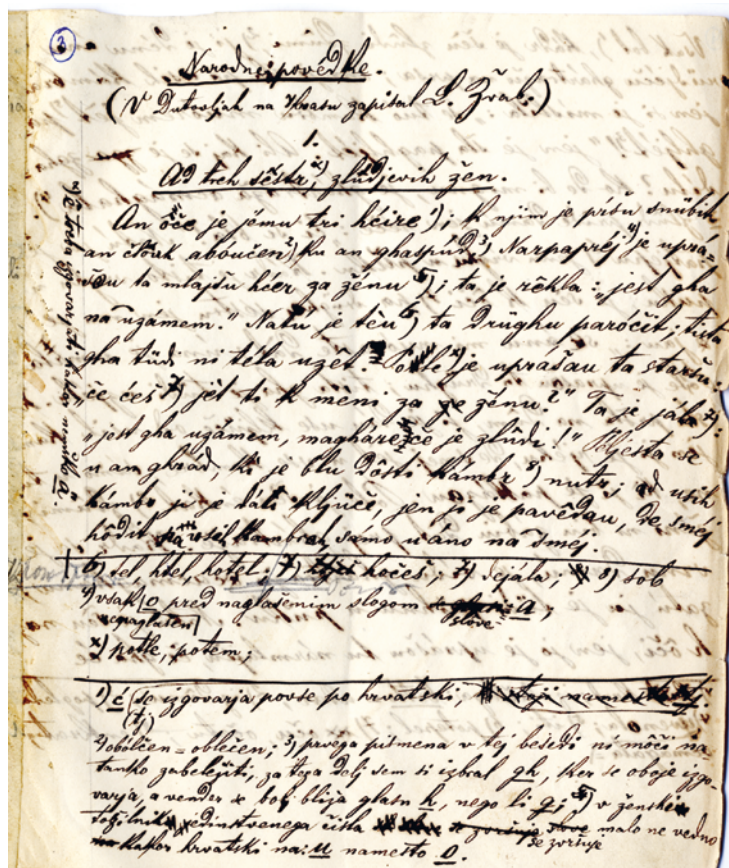 2
Narodne povédke.
(V Dutovljah na Krasu zapisal L. Žvab.)
1.
Ad treh séstr, x) zlŭdjevih žen.
An ŏče je jému tri hćire 1); k njim je pŕšu snŭbit
an člŏuk abŏučen 2) ku an ghaspŭd 3) Narpaprĕj 4) je uprá-
šŏu ta mlajšu hćer za žĕnu 5); ta je rĕkla: „jest gha
na uzámem." Natŭ je tĕu 6) ta drŭghu paróčit; tista
gha tŭdi ni tĕla uzĕt. Potle x) je uprášau ta staršu:
„če ćeš 7) jĕt ti k mĕni za ženu?" Ta je jála 7):
„jest gha uzámem, maghare če je zlŭdi!" Pĕjesta se
u am ghrad, ki je blu dŏsti kámbr 8) nutr; ad usih
kámbr ji je dáti kljŭče, jen ji je pavĕdau, de smĕj
hŏdit pa useh kambrah, sámo u áno na smĕj.
6) tel, htel, hotel; 7) hočeš; 7) dejala; 8) sob
4) vsak o pred naglašenim slogom slove a;
nenaglašen
x) potle, potem;
1) ć (se izgovarja povse po hrvatski,
(tj)
2) oboličen = oblečen; 3) prvega pismena v tej besedi ni moči na-
tanko zabeležiti, za tega delj sem si izbral gh, ker se oboje izgo-
varja, a vender se bolj bliža glasu h, nego li g; 5) v ženskem
tožilniku edinstvenega čisla malo ne vedno
se zvršuje
kakor hrvatski na: u namesto o.
x) ĕ treba izgovarjati kakor nemšk. ä.